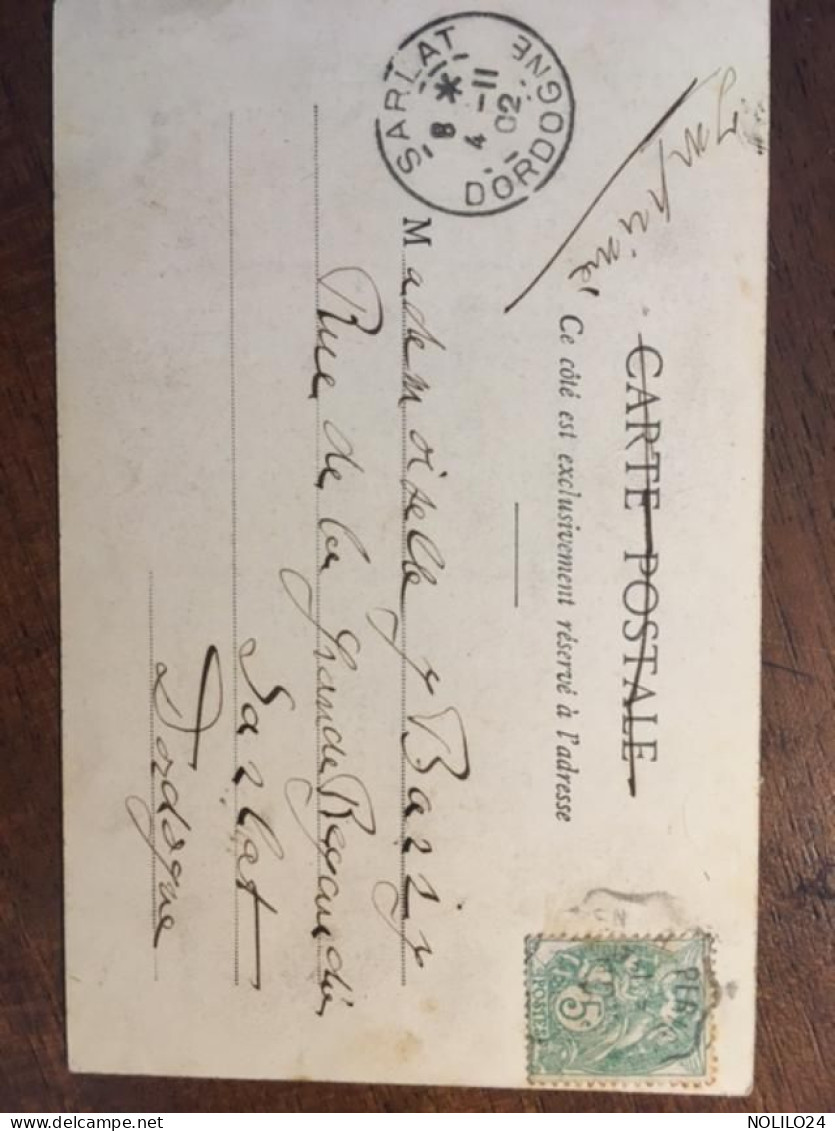 Imprimé
CARTE POSTALE
Ce côté est exclusivement réservé à l'adresse
SARLAT
8 *
4 -11
02
DORDOGNE
Mademoiselle y Barry
Rue de la Grande Rigaudie
Sarlat
Dordogne
5c
POSTES
NOLILO24